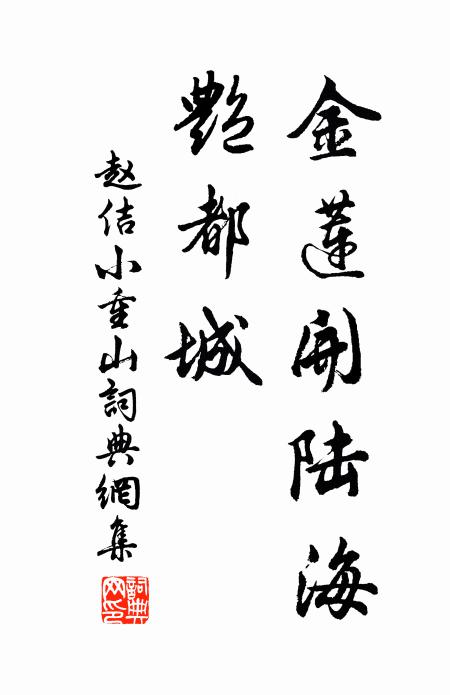 金蓮開陆海
艷都城
赵佶小重山詞典網集
詞典网印